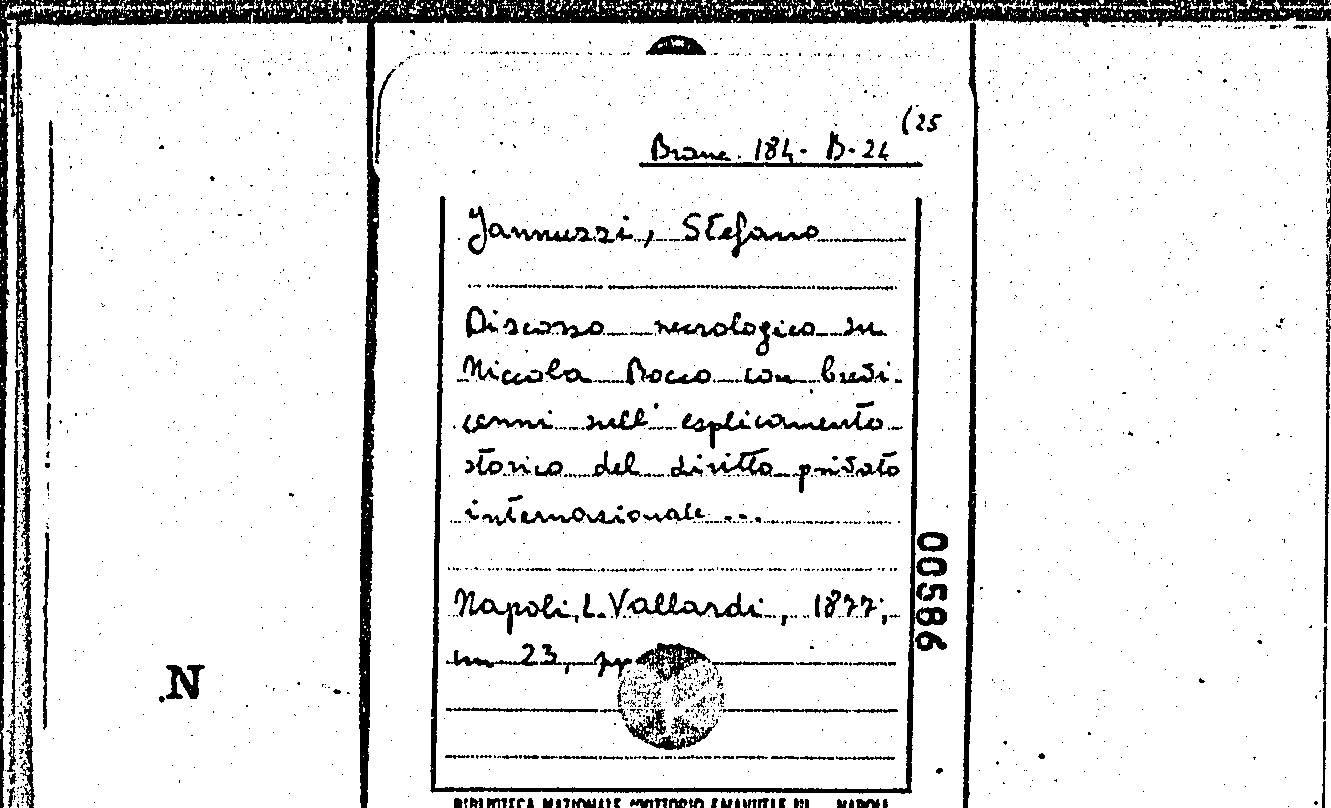 (25
Branc. 184- B-24
Jannuzzi, Stefano
Discorso necrologico su
Niccola Rocco con brevi
cenni sull'esplicamento
storico del diritto privato
internazionale ...
00586
Napoli, L. Vallardi, 1877;
cm 23, pp
N
BIBLIOTECA NAZIONALE "VITTORIO EMANUELE III" NAPOLI